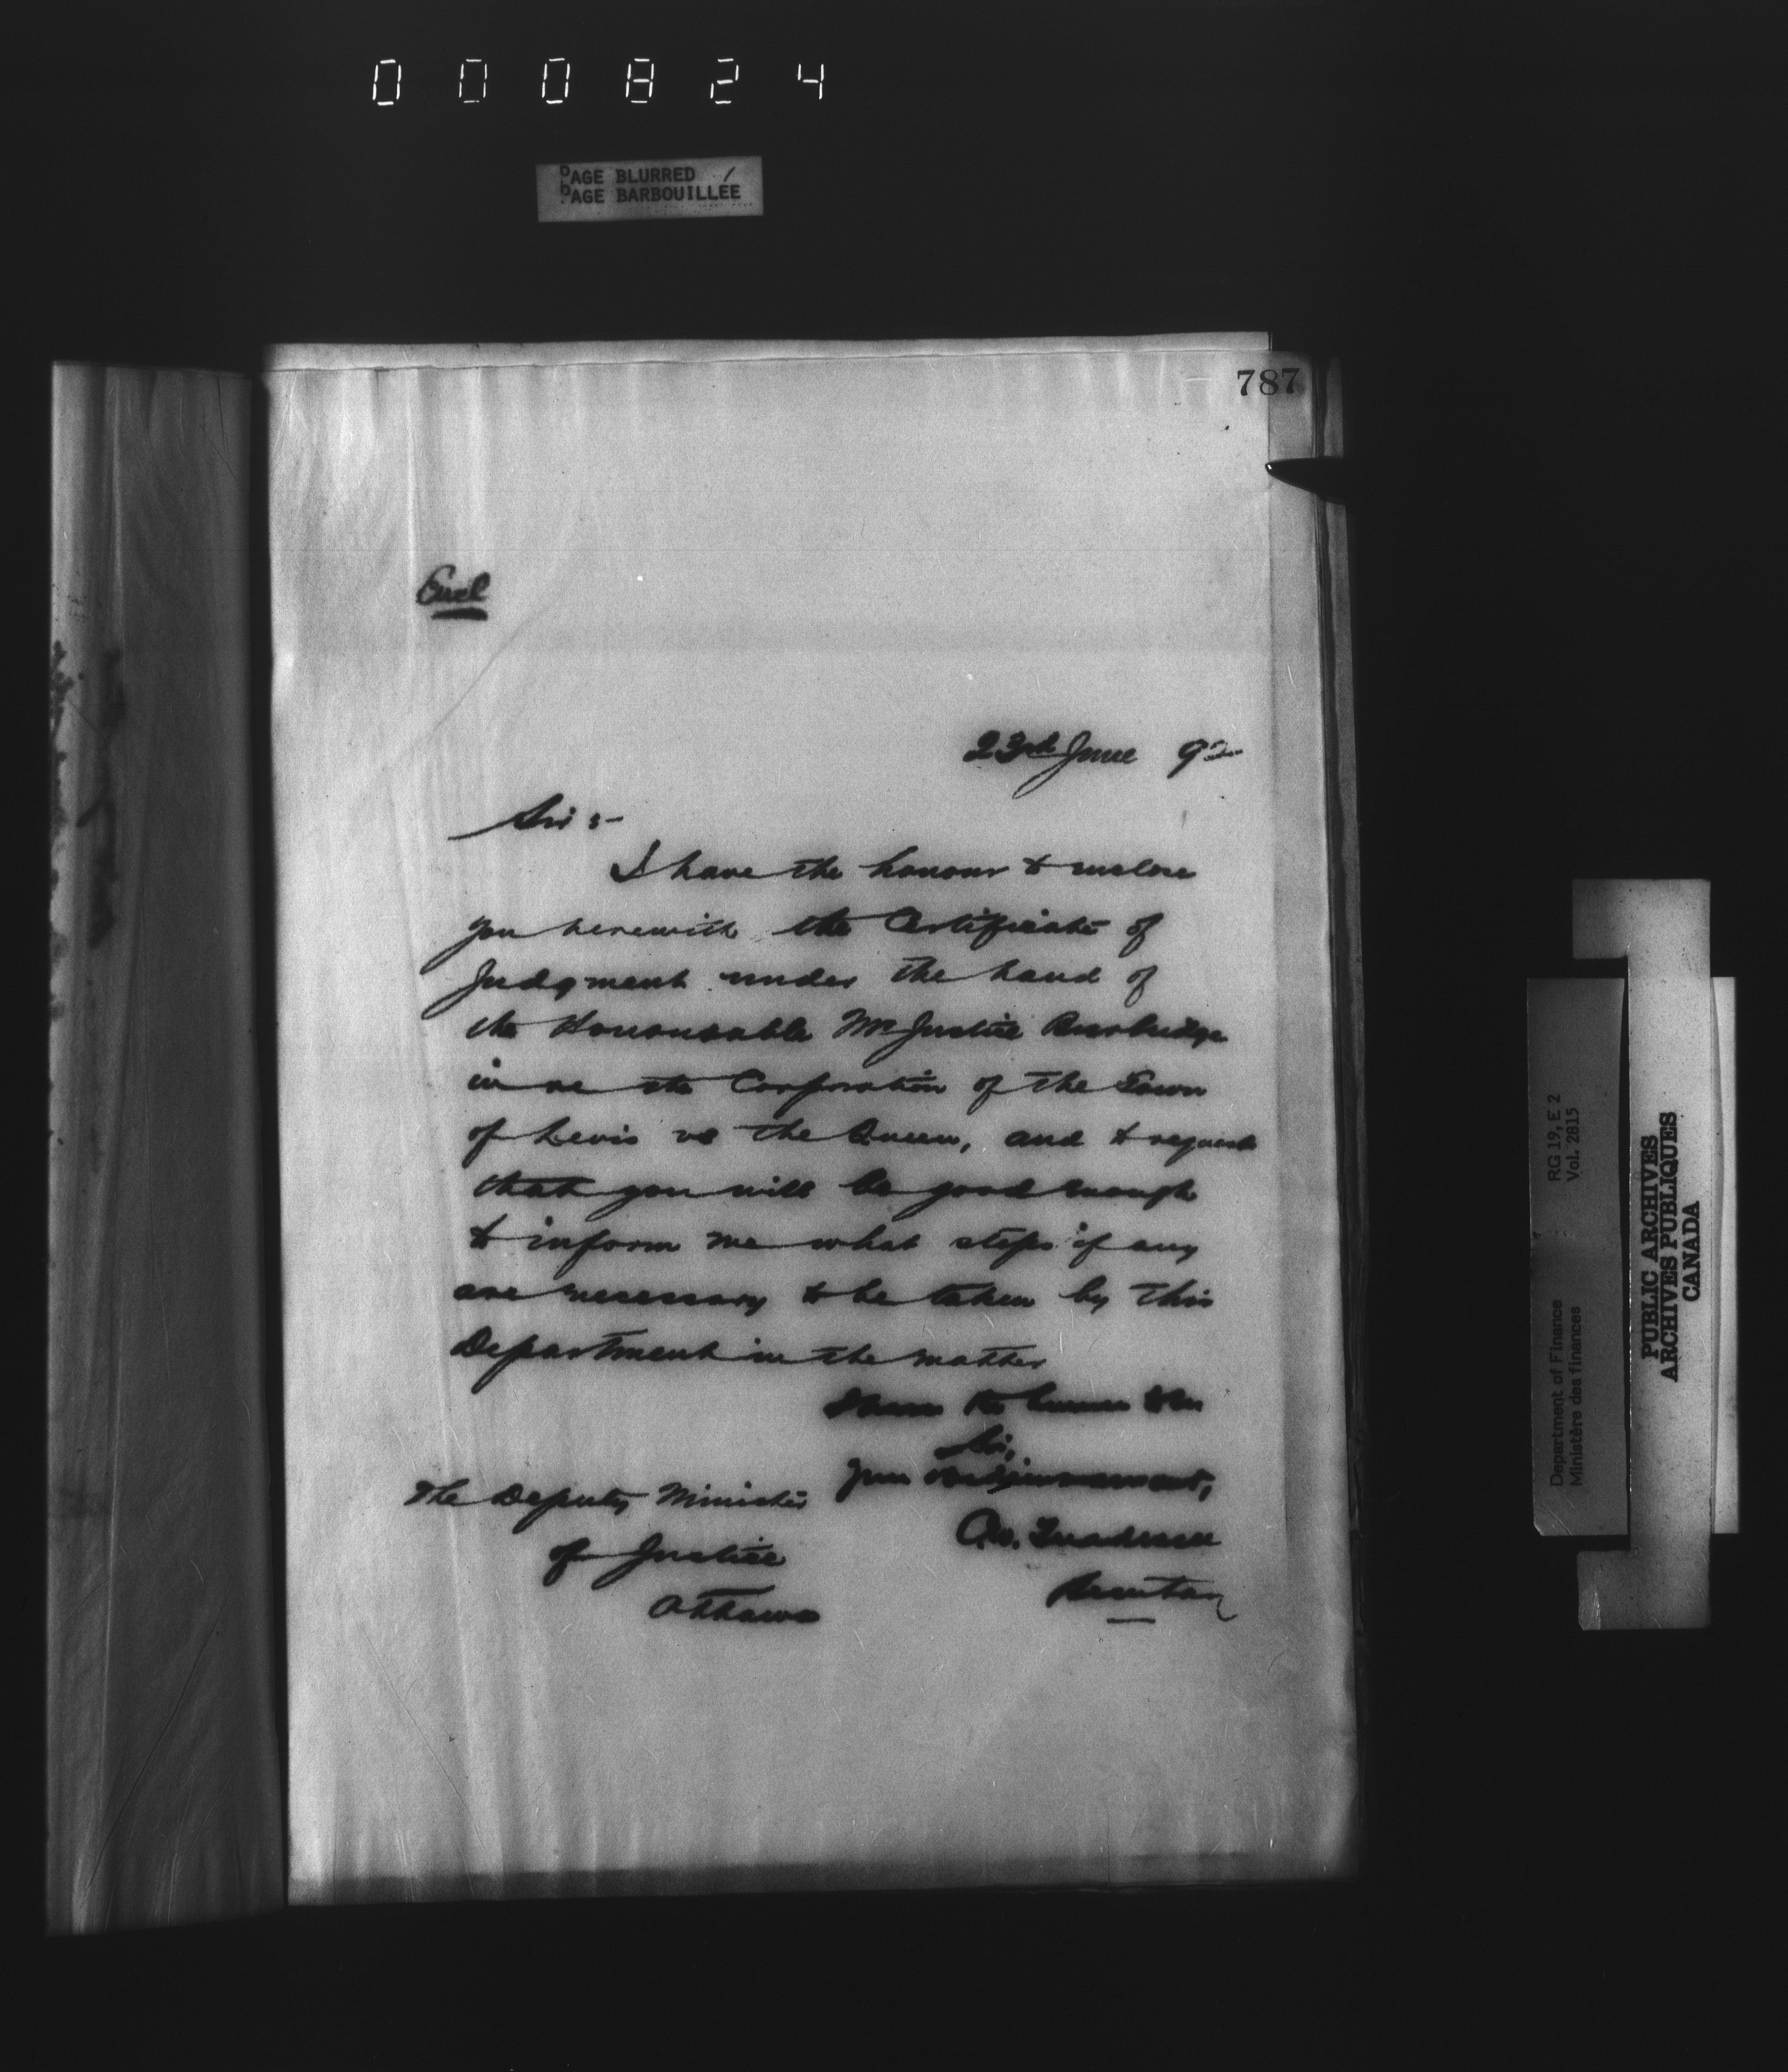 000824
PAGE BLURRED
PAGE BARBOUILLEE
787
Encl
23rd June 92
Sir :-
I have the honour to enclose
you herewith the Certificate of
Judgment under the hand of
the Honourable Mr Justice Burbidge
in re the Corporation of the Town
of Levis vs the Queen, and to request
that you will be good enough
to inform me what steps if any
are necessary to be taken by this
Department in the matter
I have the honour to be
Sir,
Your
The Deputy Minister
of Justice
Ottawa
Secretary
RG 19, E 2
Vol. 2815
Department of Finance
Ministère des finances
PUBLIC ARCHIVES
ARCHIVES PUBLIQUES
CANADA